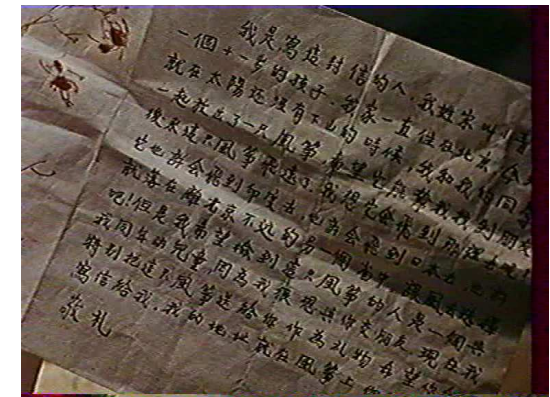 我是寫這封信的人,我姓宋叫小
一個十一歲的孩子.我家一直住在北京
就在太陽還沒有下山的時候,我和我的同學
一起放了一只風箏,希望它能幫我找到朋友
後來這只風箏飛遠了,我想它會飛到那裡去呢
它也許會飛到印度去,也許會飛到日本去,也許
就落在離北京不
吧!但是我希望撿到這只風箏的人是一個與
我同年的兒童,因為我很想與你交朋友,現在我
特别把這只風箏送給你作為礼物,希望你
寫信給我,我的地址就在風箏上
敬礼